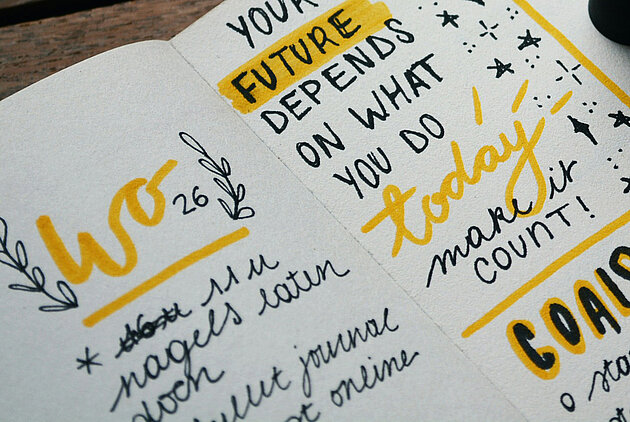 Wo 26
* 11 u
nagels laten
doen
bullet journal
online
YOUR
FUTURE
DEPENDS
ON WHAT
YOU DO
today
make it
COUNT!
GOALS
o sta